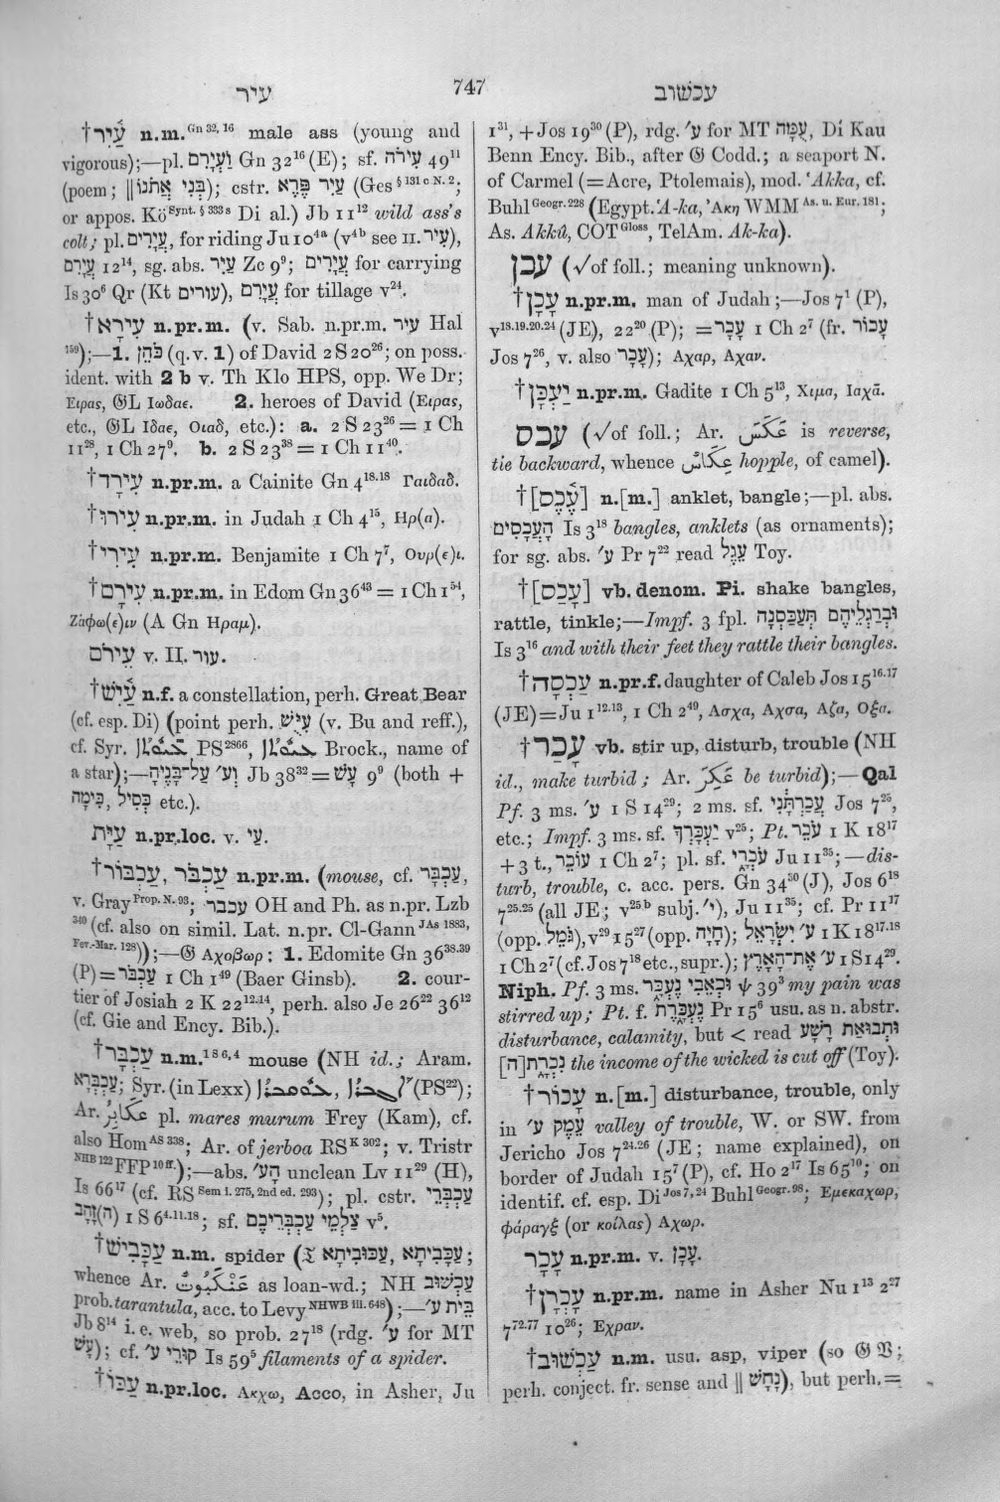 עיר
747
עכשוב
†עַ֫יִר n.m. Gn 32, 16 male ass (young and
vigorous);—pl. וַעְיָרִם Gn 32¹⁶ (E); sf. עִירֹה 49¹¹
(poem; ‖ בְּנִי אֲתֹנוֹ); cstr. עַיִר פֶּרֶא (Ges § 131 c N. 2;
or appos. Kö Synt. § 333 s Di al.) Jb 11¹² wild ass's
colt; pl. עֲיָרִים, for riding Ju 10⁴ᵃ (v⁴ᵇ see II. עיר),
עֲיָרִם 12¹⁴, sg. abs. עַיִר Zc 9⁹; עֲיָרִים for carrying
Is 30⁶ Qr (Kt עורים), עֲיָרִם for tillage v²⁴.
†עִירָא n.pr.m. (v. Sab. n.pr.m. עיר Hal
159);—1. כֹּהֵן (q.v. 1) of David 2 S 20²⁶; on poss.
ident. with 2 b v. Th Klo HPS, opp. We Dr;
Ειρας, 𝔊L Ιωδαε. 2. heroes of David (Ειρας,
etc., 𝔊L Ιδαε, Οιαδ, etc.): a. 2 S 23²⁶ = 1 Ch
11²⁸, 1 Ch 27⁹. b. 2 S 23³⁸ = 1 Ch 11⁴⁰.
†עִירָד n.pr.m. a Cainite Gn 4¹⁸·¹⁸ Γαιδαδ.
†עִירוּ n.pr.m. in Judah 1 Ch 4¹⁵, Ηρ(α).
†עִירִי n.pr.m. Benjamite 1 Ch 7⁷, Ουρ(ε)ι.
†עִירָם n.pr.m. in Edom Gn 36⁴³ = 1 Ch 1⁵⁴,
Ζαφω(ε)ιν (A Gn Ηραμ).
עֵירֹם v. II. עור.
†עַ֫יִשׁ n.f. a constellation, perh. Great Bear
(cf. esp. Di) (point perh. עֻיִשׁ (v. Bu and reff.),
cf. Syr. PS 2866, Brock., name of
a star);—וְע׳ עַל־בָּנֶיהָ Jb 38³² = עָשׁ 9⁹ (both +
כְּסִיל, כִּימָה etc.).
עַיָּת n.pr.loc. v. עַי.
†עַכְבֹּר, עַכְבּוֹר n.pr.m. (mouse, cf. עַכְבָּר,
v. Gray Prop. N. 93; עכבר OH and Ph. as n.pr. Lzb
340 (cf. also on simil. Lat. n.pr. Cl-Gann JAs 1883,
Fev.-Mar. 128));—𝔊 Αχοβωρ: 1. Edomite Gn 36³⁸·³⁹
(P) = עַכְבֹּר 1 Ch 1⁴⁹ (Baer Ginsb). 2. cour-
tier of Josiah 2 K 22¹²·¹⁴, perh. also Je 26²² 36¹²
(cf. Gie and Ency. Bib.).
†עַכְבָּר n.m. 1 S 6, 4 mouse (NH id.; Aram.
עַכְבְּרָא; Syr. (in Lexx) (PS 22);
Ar. عكابر pl. mares murum Frey (Kam), cf.
also Hom AS 338; Ar. of jerboa RS K 302; v. Tristr
NHB 122 FFP 10 ff.);—abs. הָע׳ unclean Lv 11²⁹ (H),
Is 66¹⁷ (cf. RS Sem i. 275, 2nd ed. 293); pl. cstr. עַכְבְּרֵי
(ה)זָהָב 1 S 6⁴·¹¹·¹⁸; sf. צַלְמֵי עַכְבְּרֵיכֶם v⁵.
†עַכָּבִישׁ n.m. spider (𝔗 עַכָּבִיתָא, עַכּוּבִיתָא;
whence Ar. عَنْكَبُوتٌ as loan-wd.; NH עכשוב
prob. tarantula, acc. to Levy NHWB iii. 648);—בֵּית ע׳
Jb 8¹⁴ i.e. web, so prob. 27¹⁸ (rdg. ע׳ for MT
עָשׁ); cf. קוּרֵי ע׳ Is 59⁵ filaments of a spider.
†עַכּוֹ n.pr.loc. Ακχω, Acco, in Asher, Ju
1³¹, + Jos 19³⁰ (P), rdg. ע׳ for MT עֻמָה, Di Kau
Benn Ency. Bib., after 𝔊 Codd.; a seaport N.
of Carmel (= Acre, Ptolemais), mod. ʿAkka, cf.
Buhl Geogr. 228 (Egypt. ʿA-ka, Ἀκη WMM As. u. Eur. 181;
As. Akkû, COT Gloss, TelAm. Ak-ka).
עכן (√of foll.; meaning unknown).
†עָכָן n.pr.m. man of Judah;—Jos 7¹ (P),
v¹⁸·¹⁹·²⁰·²⁴ (JE), 22²⁰ (P); = עָכָר 1 Ch 2⁷ (fr. עָכוֹר
Jos 7²⁶, v. also עָכָר); Αχαρ, Αχαν.
†יַעְכָּן n.pr.m. Gadite 1 Ch 5¹³, Χιμα, Ιαχᾶ.
עכס (√of foll.; Ar. عَكَسَ is reverse,
tie backward, whence عِكَاسٌ hopple, of camel).
†[עֶ֫כֶס] n.[m.] anklet, bangle;—pl. abs.
הָעֲכָסִים Is 3¹⁸ bangles, anklets (as ornaments);
for sg. abs. ע׳ Pr 7²² read עֵגֶל Toy.
†[עָכַס] vb. denom. Pi. shake bangles,
rattle, tinkle;—Impf. 3 fpl. וּבְרַגְלֵיהֶם תְּעַכַּסְנָה
Is 3¹⁶ and with their feet they rattle their bangles.
†עַכְסָה n.pr.f. daughter of Caleb Jos 15¹⁶·¹⁷
(JE) = Ju 1¹²·¹³, 1 Ch 2⁴⁹, Ασχα, Αχσα, Αζα, Οξα.
†עָכַר vb. stir up, disturb, trouble (NH
id., make turbid; Ar. عَكِرَ be turbid);—Qal
Pf. 3 ms. ע׳ 1 S 14²⁹; 2 ms. sf. עֲכַרְתָּ֫נִי Jos 7²⁵,
etc.; Impf. 3 ms. sf. יַעְכָּרְךָ v²⁵; Pt. עֹכֵר 1 K 18¹⁷
+ 3 t., עוֹכֵר 1 Ch 2⁷; pl. sf. עֹכְרָי Ju 11³⁵;—dis-
turb, trouble, c. acc. pers. Gn 34³⁰ (J), Jos 6¹⁸
7²⁵·²⁵ (all JE; v²⁵ᵇ subj. י׳), Ju 11³⁵; cf. Pr 11¹⁷
(opp. גֹּמֵל), v²⁹ 15²⁷ (opp. חָיָה); ע׳ יִשְׂרָאֵל 1 K 18¹⁷·¹⁸
1 Ch 2⁷ (cf. Jos 7¹⁸ etc., supr.); ע׳ אֶת־הָאָרֶץ 1 S 14²⁹.
Niph. Pf. 3 ms. וּכְאֵבִי נֶעְכָּר ψ 39³ my pain was
stirred up; Pt. f. נֶעְכָּרֶת Pr 15⁶ usu. as n. abstr.
disturbance, calamity, but < read וּתְבוּאַת רָשָׁע
נִכְרָת[ה] the income of the wicked is cut off (Toy).
†עָכוֹר n.[m.] disturbance, trouble, only
in עֵמֶק ע׳ valley of trouble, W. or SW. from
Jericho Jos 7²⁴·²⁶ (JE; name explained), on
border of Judah 15⁷ (P), cf. Ho 2¹⁷ Is 65¹⁰; on
identif. cf. esp. Di Jos 7, 24 Buhl Geogr. 98; Εμεκαχωρ,
φάραγξ (or κοίλας) Αχωρ.
עָכָר n.pr.m. v. עָכָן.
†עָכְרָן n.pr.m. name in Asher Nu 1¹³ 2²⁷
7⁷²·⁷⁷ 10²⁶; Εχραν.
†עַכְשׁוּב n.m. usu. asp, viper (so 𝔊 𝔙;
perh. conject. fr. sense and ‖ נָחָשׁ), but perh. =